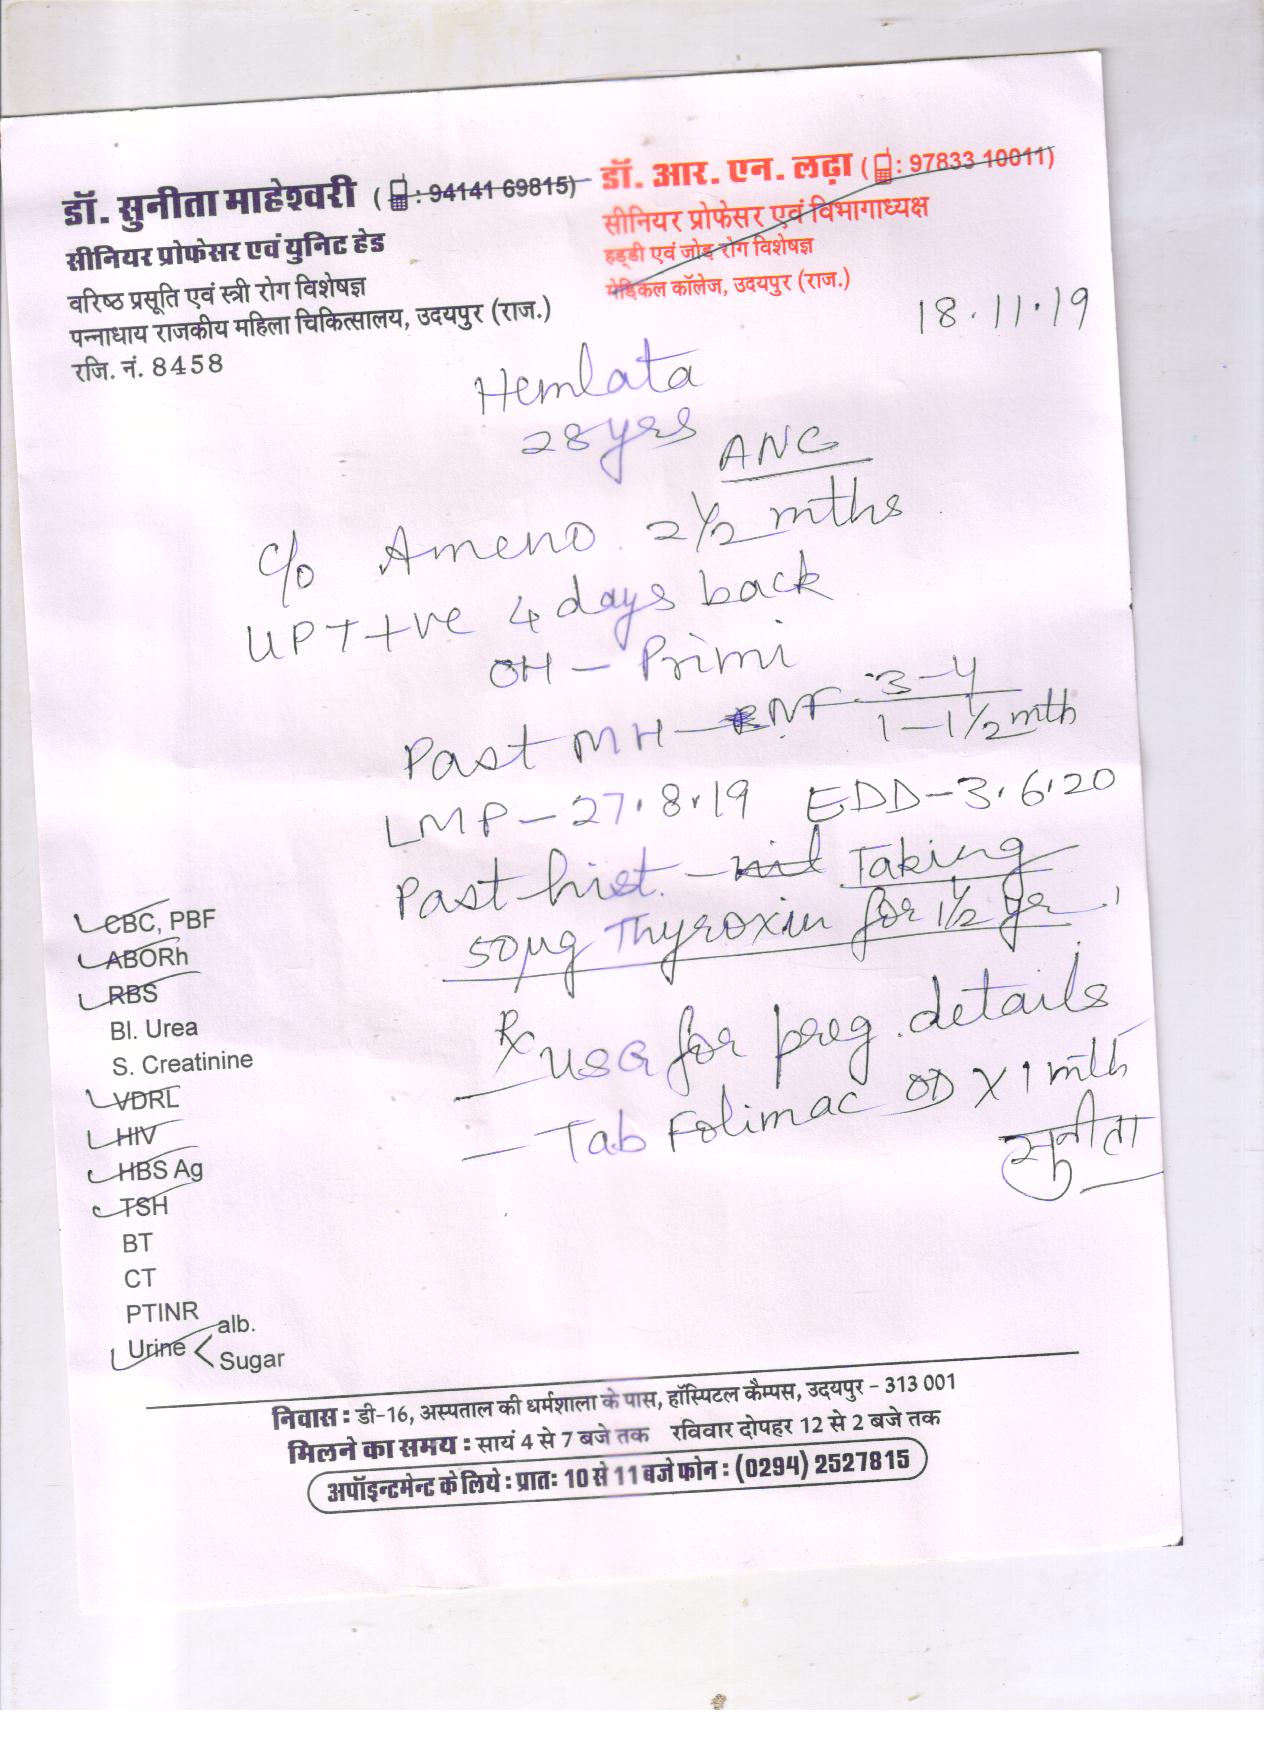 डॉ. सुनीता माहेश्वरी (: 94141 69815)
सीनियर प्रोफेसर एवं युनिट हेड
वरिष्ठ प्रसूति एवं स्त्री रोग विशेषज्ञ
पन्नाधाय राजकीय महिला चिकित्सालय, उदयपुर (राज.)
रजि. नं. 8458
डॉ. आर. एन. लढ़ा (: 97833 10011)
सीनियर प्रोफेसर एवं विभागाध्यक्ष
हड्डी एवं जोड़ रोग विशेषज्ञ
मेडिकल कॉलेज, उदयपुर (राज.)
18.11.19
Hemlata
28yrs
ANC
c/o Ameno. 2½ mths
UPT +ve 4 days back
OH - Primi
Past MH - NF 3-4
1-1½ mth
LMP - 27.8.19 EDD - 3.6.20
Past hist. - nil Taking
50µg Thyroxin for 1½ yr.
Rx USG for preg. details
- Tab Folimac OD X 1 mth
सुनीता
CBC, PBF
ABORh
RBS
Bl. Urea
S. Creatinine
VDRL
HIV
HBS Ag
TSH
BT
CT
PTINR
Urine < alb.
Sugar
निवास : डी-16, अस्पताल की धर्मशाला के पास, हॉस्पिटल कैम्पस, उदयपुर - 313 001
मिलने का समय : सायं 4 से 7 बजे तक रविवार दोपहर 12 से 2 बजे तक
अपॉइन्टमेन्ट के लिये : प्रातः 10 से 11 बजे फोन : (0294) 2527815